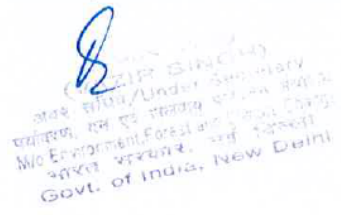 (NAZIR SINGH)
अवर सचिव/Under Secretary
पर्यावरण, वन एवं जलवायु
M/o Environment, Forest and Climate Change
भारत सरकार, नई दिल्ली
Govt. of India, New Delhi